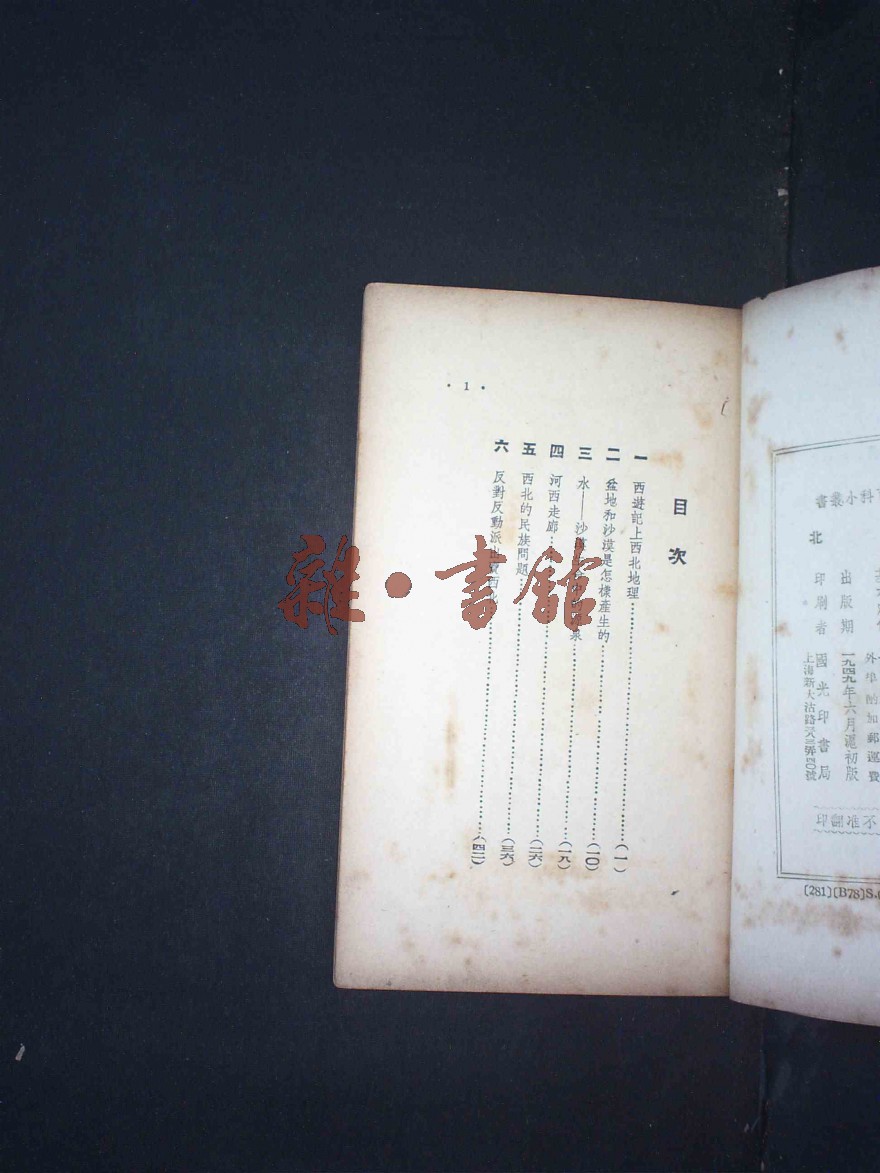 書叢小科
北
出版期 一九四九年六月滬初版
印刷者 國光印書局
上海新大沽路
外埠酌加郵運費
不准翻印
(281)(B78)S.
目次
一 西遊記上西北地理……(一)
二 盆地和沙漠是怎樣產生的……(一〇)
三 水——沙漠……泉……(一九)
四 河西走廊……(二六)
五 西北的民族問題……(三六)
六 反對反動派出賣西北……(四二)
• 1 •
雜·書館